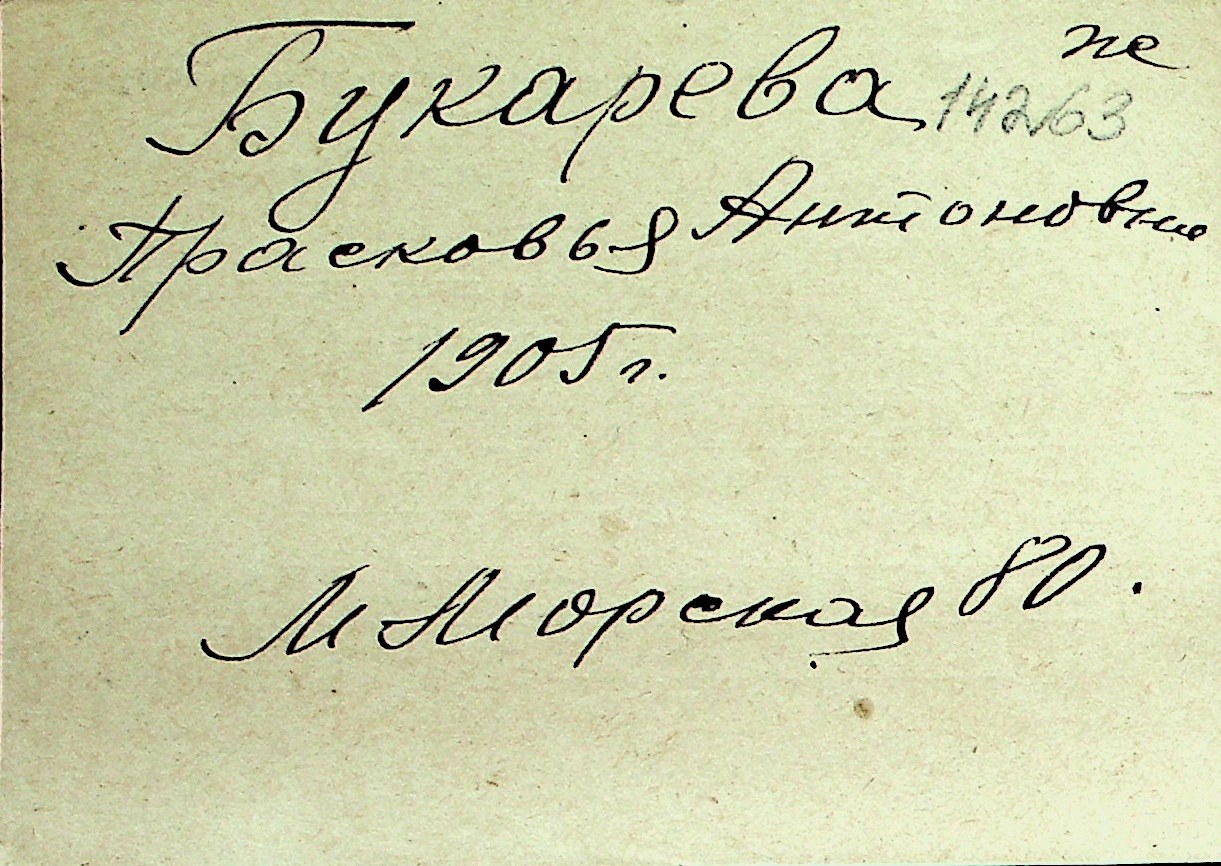 же
Букарева 14263
Прасковья Антоновна
1905г.
М Морская 80.